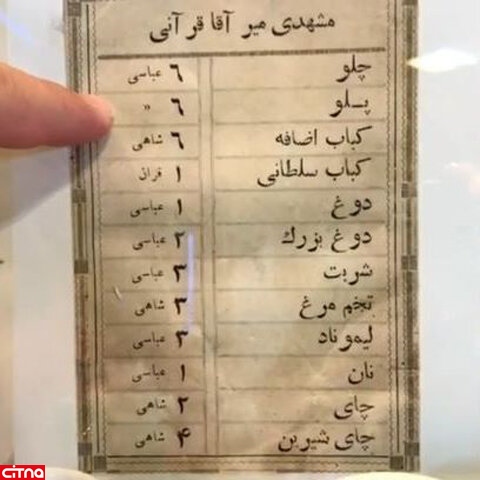 مشهدی میر آقا قرآنی
چلو ۶ عباسی
پلو ۶ «
کباب اضافه ۶ شاهی
کباب سلطانی ۱ قران
دوغ ۱ عباسی
دوغ بزرك ۲ عباسی
شربت ۳ عباسی
تخم مرغ ۳ شاهی
لیموناد ۳ عباسی
نان ۱ عباسی
چای ۲ شاهی
چای شیرین ۴ شاهی
CITNA